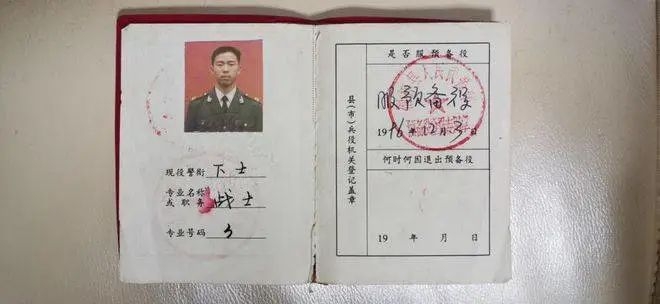 现役警衔 下士
专业名称
或职务 战士
专业号码 3
县(市)兵役机关登记盖章
是否服预备役
服预备役
1996年12月3日
何时何因退出预备役
19 年 月 日